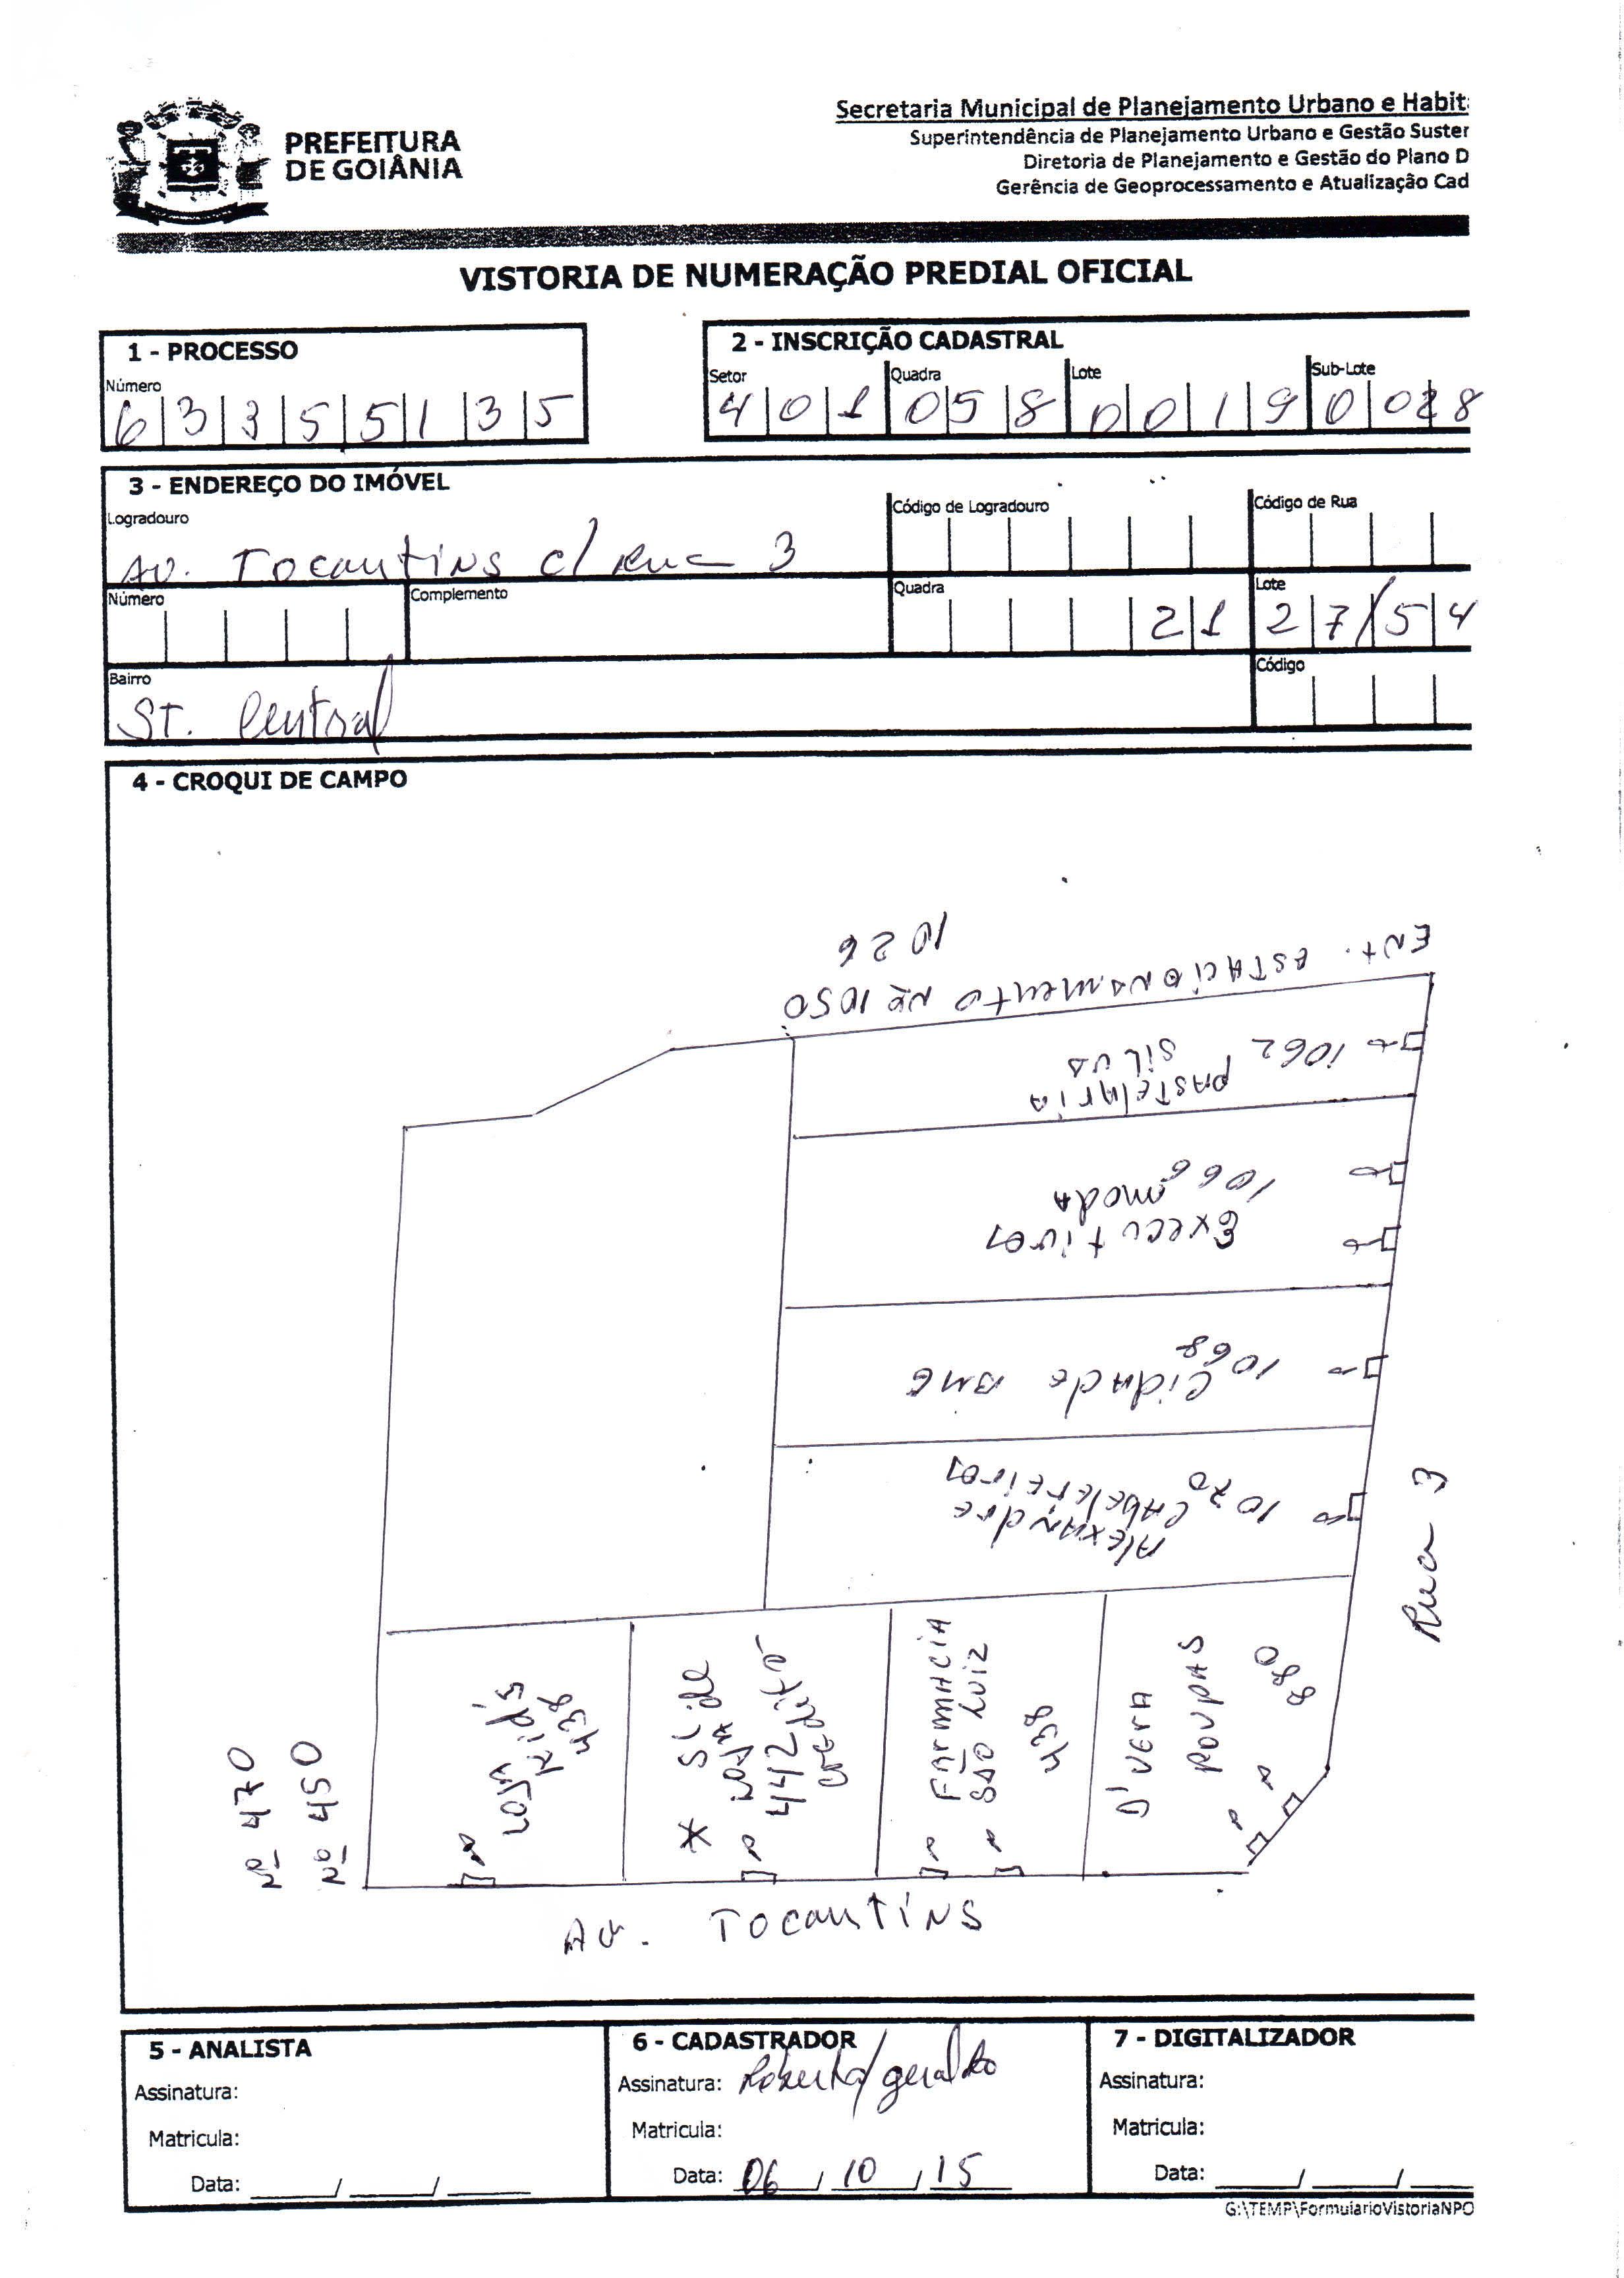 PREFEITURA
DE GOIÂNIA
Secretaria Municipal de Planejamento Urbano e Habit
Superintendência de Planejamento Urbano e Gestão Suster
Diretoria de Planejamento e Gestão do Plano D
Gerência de Geoprocessamento e Atualização Cad
VISTORIA DE NUMERAÇÃO PREDIAL OFICIAL
1 - PROCESSO
Número
6 3 3 5 5 1 3 5
2 - INSCRIÇÃO CADASTRAL
Setor Quadra Lote Sub-Lote
4 0 1 0 5 8 0 0 1 9 0 0 2 8
3 - ENDEREÇO DO IMÓVEL
Logradouro
Av. Tocantins c/ Rua 3
Código de Logradouro
Código de Rua
Número
Complemento
Quadra
2 1
Lote
2 7 / 5 4
Bairro
ST. Central
Código
4 - CROQUI DE CAMPO
1026
ENt. ESTACIONAmento Nº 1050
1062 PASTELARIA
SILVA
1066
moda
Executivos
1068
Cidade BMG
1070 CABELEREIROS
ALEXANDRE
Rua 3
Nº 470
Nº 450
LOJA
Kid's
438
* SL ide
LOJA
442
CREdito
FARMACIA
SÃO LUIZ
438
D'VERA
ROUPAS
880
AV. TOCANTINS
5 - ANALISTA
Assinatura:
Matricula:
Data: / /
6 - CADASTRADOR
Assinatura: Roberto/geraldo
Matricula:
Data: 06 / 10 / 15
7 - DIGITALIZADOR
Assinatura:
Matricula:
Data: / /
G:\TEMP\FormularioVistoriaNPO